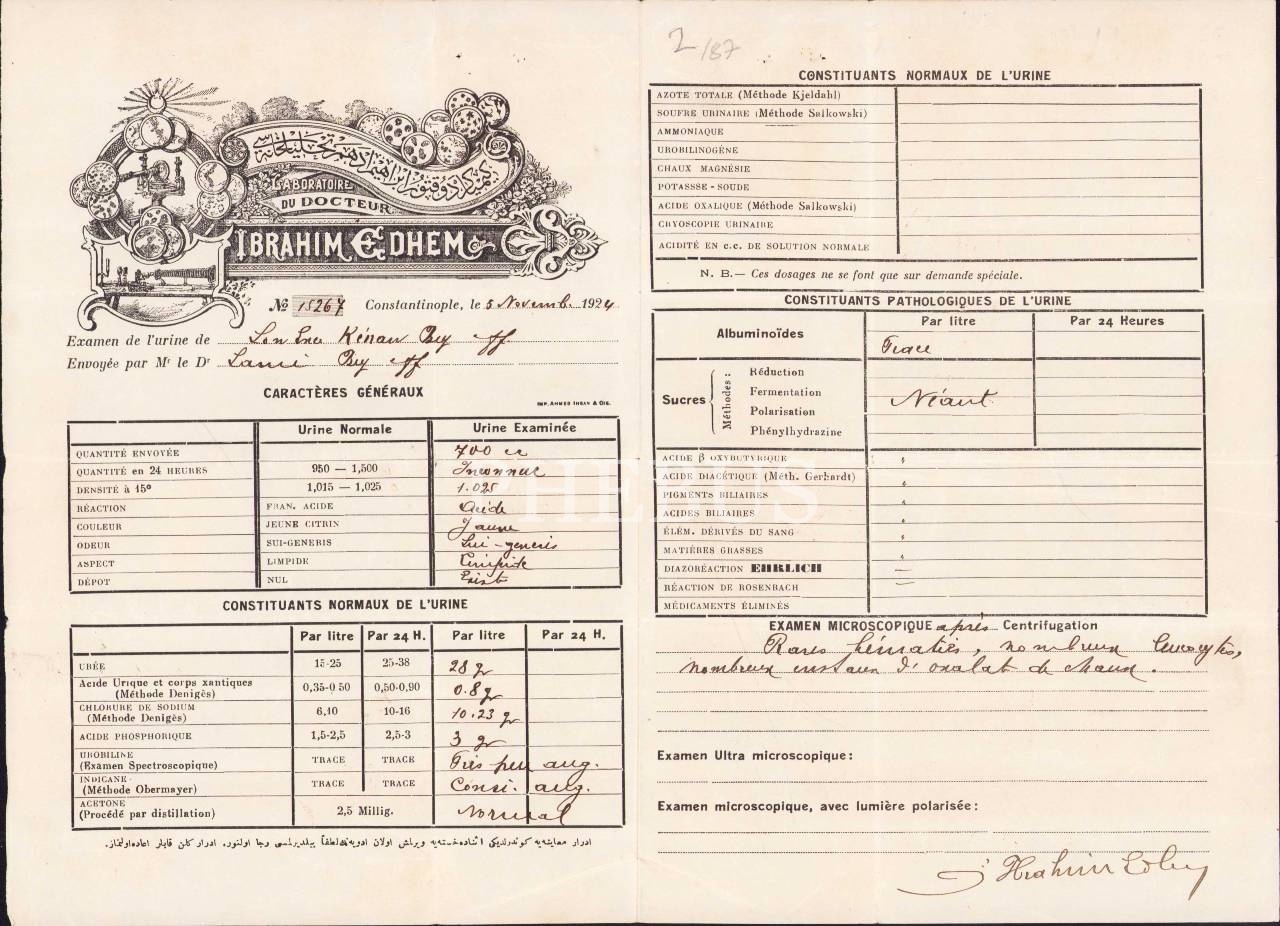 كيمياكر دوقتور ابراهيم ادهم تحليلخانه سى
LABORATOIRE
DU DOCTEUR
IBRAHIM EDHEM
No 15267 Constantinople, le 5 Novemb. 1924
Examen de l'urine de Kénan Bey eff
Envoyée par Mr le Dr Lami Bey eff
CARACTÈRES GÉNÉRAUX
IMP. AHMED IHSAN & Cie.
Urine Normale Urine Examinée
QUANTITÉ ENVOYÉE 700 cc
QUANTITÉ en 24 HEURES 950 — 1,500 Inconnue
DENSITÉ à 15º 1,015 — 1,025 1.025
RÉACTION FRAN. ACIDE Acide
COULEUR JEUNE CITRIN Jaune
ODEUR SUI-GENERIS Sui-generis
ASPECT LIMPIDE Limpide
DÉPOT NUL Exist
CONSTITUANTS NORMAUX DE L'URINE
Par litre Par 24 H. Par litre Par 24 H.
URÉE 15-25 25-38 28 gr
Acide Urique et corps xantiques 0,35-0 50 0,50-0,90 0.8 gr
(Méthode Denigès)
CHLORURE DE SODIUM 6,10 10-16 10.23 gr
(Méthode Denigès)
ACIDE PHOSPHORIQUE 1,5-2,5 2,5-3 3 gr
UROBILINE TRACE TRACE Très peu aug.
(Examen Spectroscopique)
INDICANE TRACE TRACE Consi. aug.
(Méthode Obermayer)
ACETONE 2,5 Millig. Normal
(Procédé par distillation)
ادرار معاينه‌يه كوندرلديكى اثناده خسته‌يه ويرلمش اولان ادويه‌نك لطفاً بيلديرلمسى رجا اولنور. ادرار كلن قابلر اعاده اولنماز.
2/87
CONSTITUANTS NORMAUX DE L'URINE
AZOTE TOTALE (Méthode Kjeldahl)
SOUFRE URINAIRE (Méthode Salkowski)
AMMONIAQUE
UROBILINOGÈNE
CHAUX MAGNÉSIE
POTASSSE - SOUDE
ACIDE OXALIQUE (Méthode Salkowski)
CRYOSCOPIE URINAIRE
ACIDITÉ EN c.c. DE SOLUTION NORMALE
N. B.— Ces dosages ne se font que sur demande spéciale.
CONSTITUANTS PATHOLOGIQUES DE L'URINE
Par litre Par 24 Heures
Albuminoïdes Trace
Sucres Méthodes : Réduction
Fermentation Néant
Polarisation
Phénylhydrazine
ACIDE β OXYBUTYRIQUE "
ACIDE DIACÉTIQUE (Méth. Gerhardt) "
PIGMENTS BILIAIRES "
ACIDES BILIAIRES "
ÉLÉM. DÉRIVÉS DU SANG "
MATIÈRES GRASSES "
DIAZORÉACTION EHRLICH —
RÉACTION DE ROSENBACH —
MÉDICAMENTS ÉLIMINÉS
EXAMEN MICROSCOPIQUE après Centrifugation
Rares hématies, nombreux leucocytes,
nombreux cristaux d'oxalat de chaux.
Examen Ultra microscopique:
Examen microscopique, avec lumière polarisée:
Ibrahim Edhem
PHEBUS